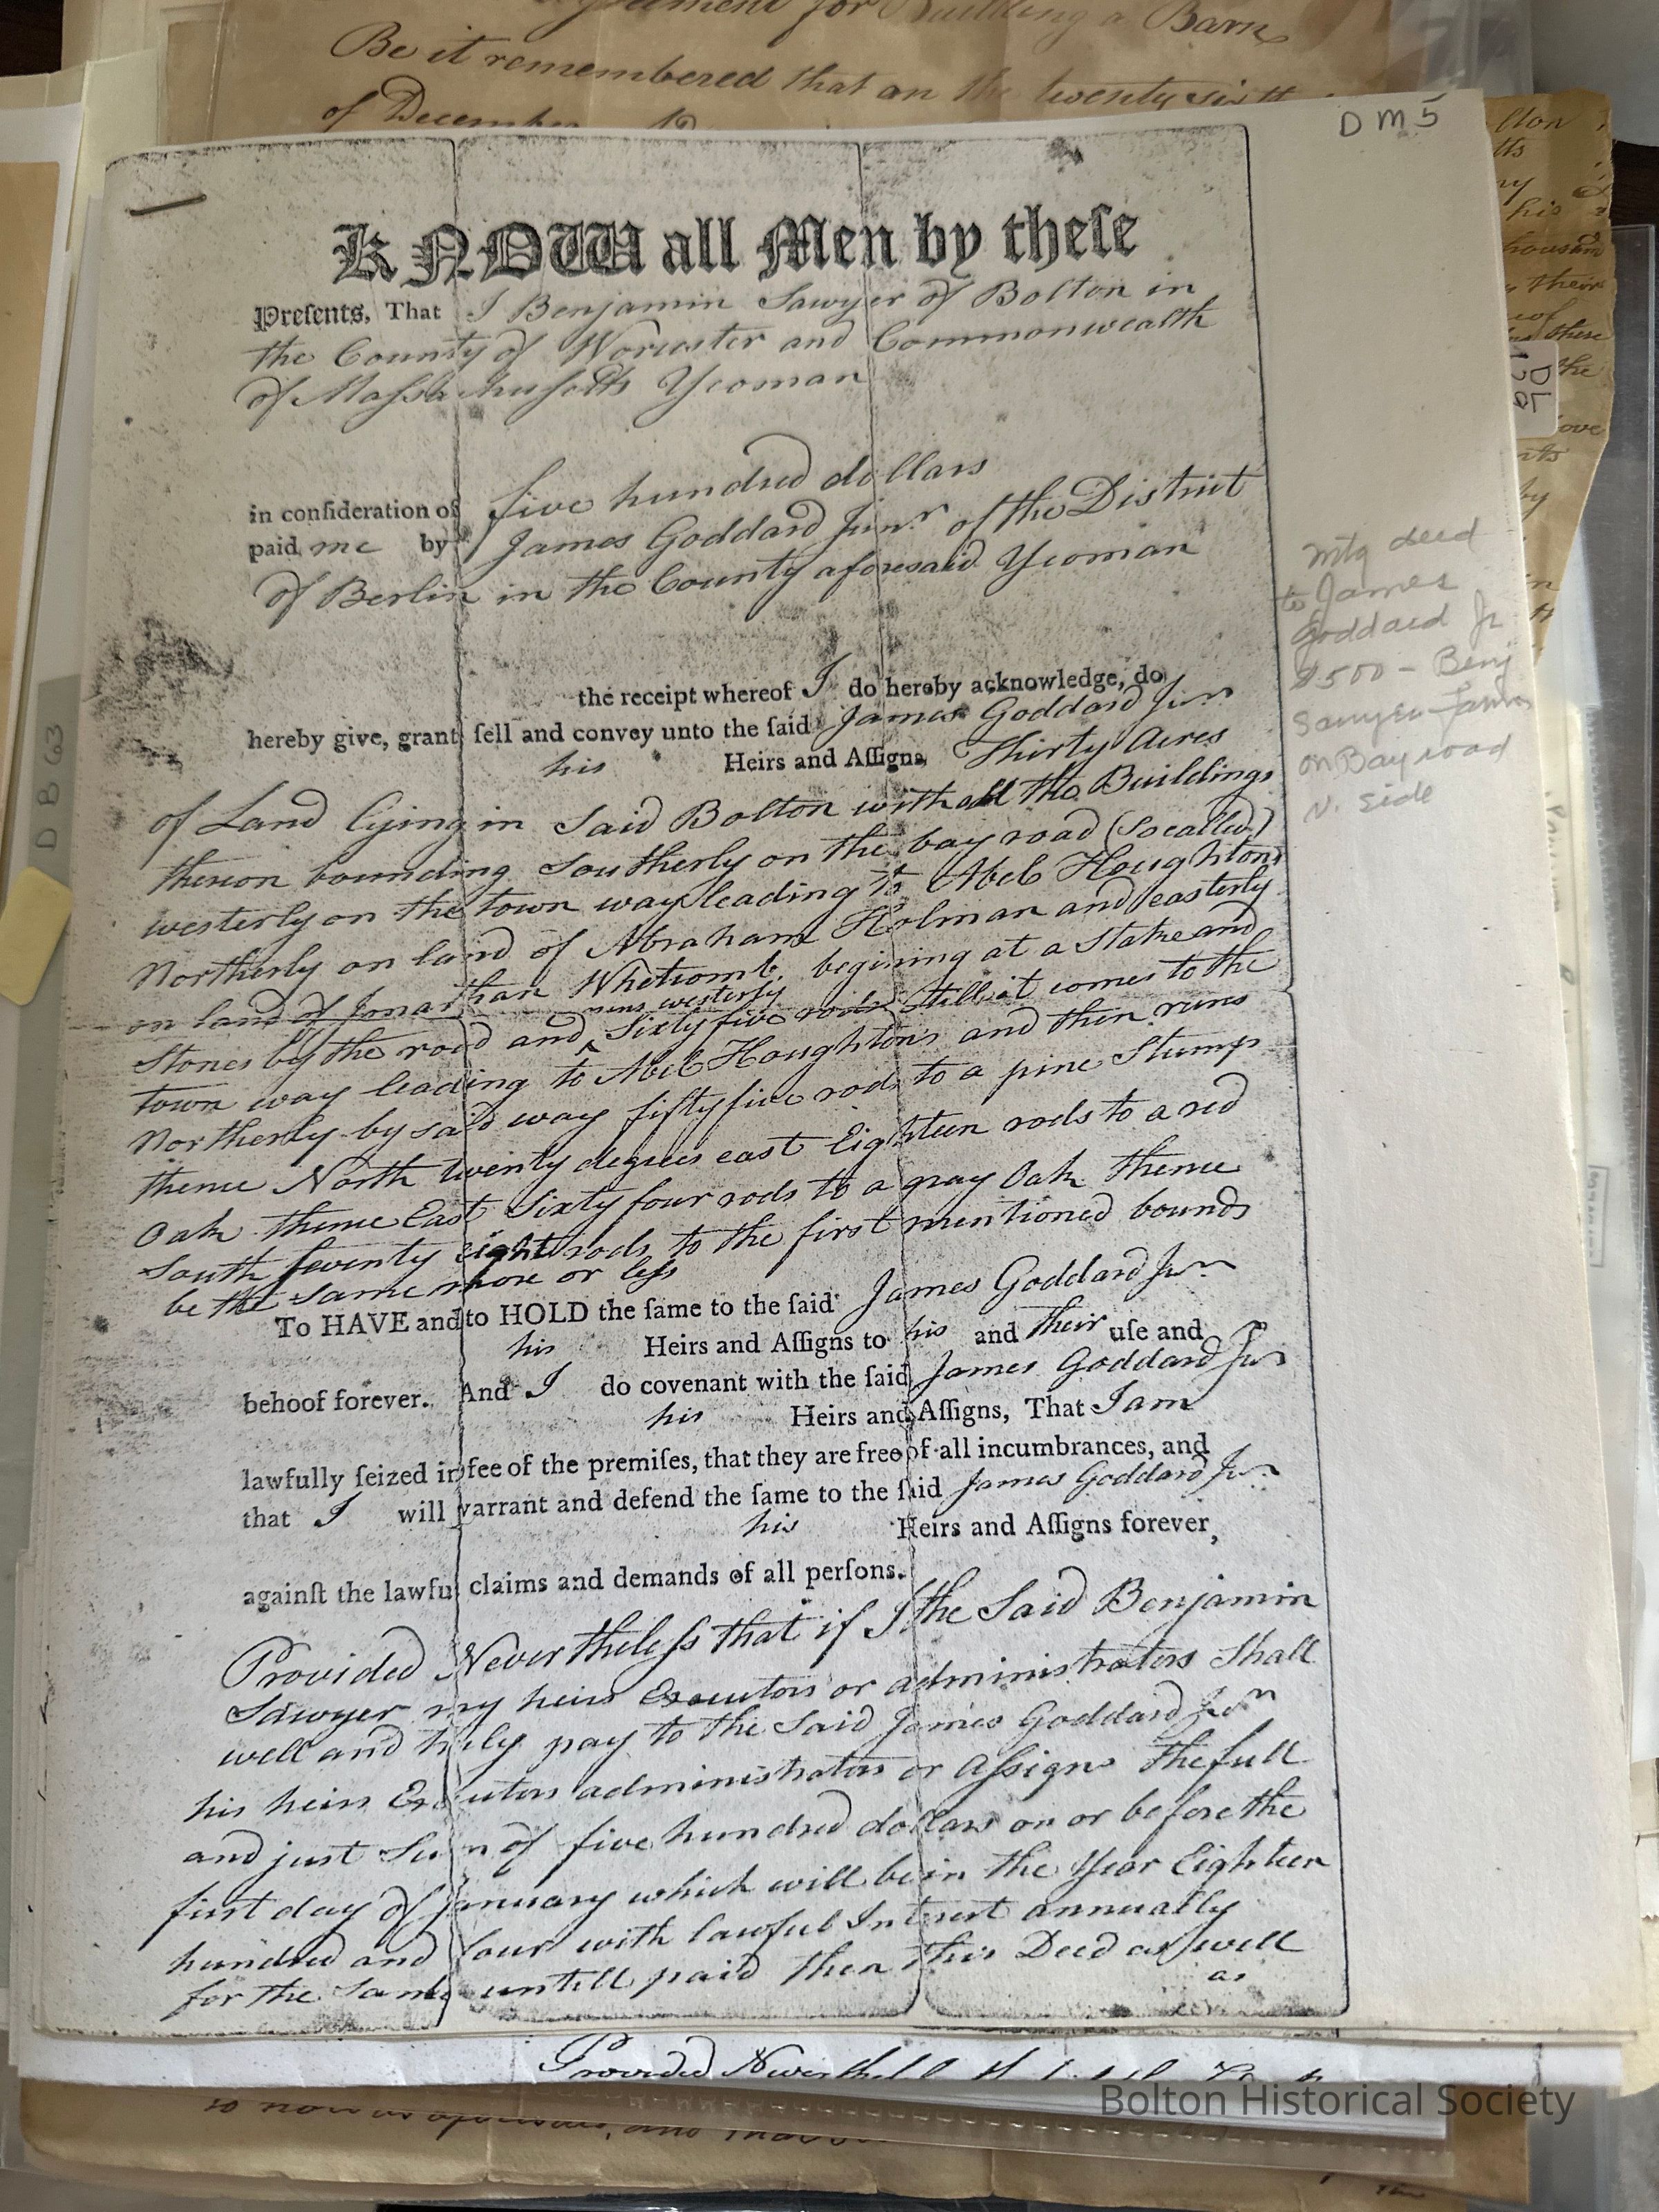 Agreement for Building a Barn
Be it remembered that on the twenty sixth
of December
DM5
KNOW all Men by theſe
Preſents, That I Benjamin Sawyer of Bolton in
the County of Worcester and Commonwealth
of Maſsachuſetts Yeoman
in conſideration of five hundred dollars
paid me by James Goddard Junr of the District
of Berlin in the County aforesaid Yeoman
the receipt whereof I do hereby acknowledge, do
hereby give, grant ſell and convey unto the ſaid James Goddard Jun
his Heirs and Aſſigns, Thirty Acres
of Land lying in Said Bolton with all the Buildings
thereon bounding Southerly on the bay road (So called)
westerly on the town way leading to Abel Houghtons
Northerly on land of Abraham Holman and easterly
on land of Jonathan Whetcomb. begining at a Stake and
Stones by the road and runs westerly Sixty five rods still it comes to the
town way leading to Abel Houghton's and then runs
Northerly by said way fifty five rods to a pine Stump
thence North twenty degrees east Eighteen rods to a red
Oak thence East Sixty four rods to a gray Oak thence
South ſeventy eight rods to the first mentioned bounds
be the same more or leſs
To HAVE and to HOLD the ſame to the ſaid James Goddard Jun
his Heirs and Aſſigns to his and their uſe and
behoof forever. And I do covenant with the ſaid James Goddard Jun
his Heirs and Aſſigns, That I am
lawfully ſeized in fee of the premiſes, that they are free of all incumbrances, and
that I will warrant and defend the ſame to the ſaid James Goddard Jun
his Heirs and Aſſigns forever,
againſt the lawful claims and demands of all perſons.
Provided Nevertheleſs that if I the Said Benjamin
Sawyer my heirs Executors or administrators Shall
well and truly pay to the Said James Goddard Jun
his heirs Executors administrators or Aſsigns the full
and just Sum of five hundred dollars on or before the
first day of January which will be in the Year Eighteen
hundred and four with lawful Intrest annually
for the Same untill paid then this Deed as well
as
mtg deed
to James
Goddard Jr
$500 - Benj
Sawyer Farm
on Bay road
N. Side
DB63
Provided
Bolton Historical Society